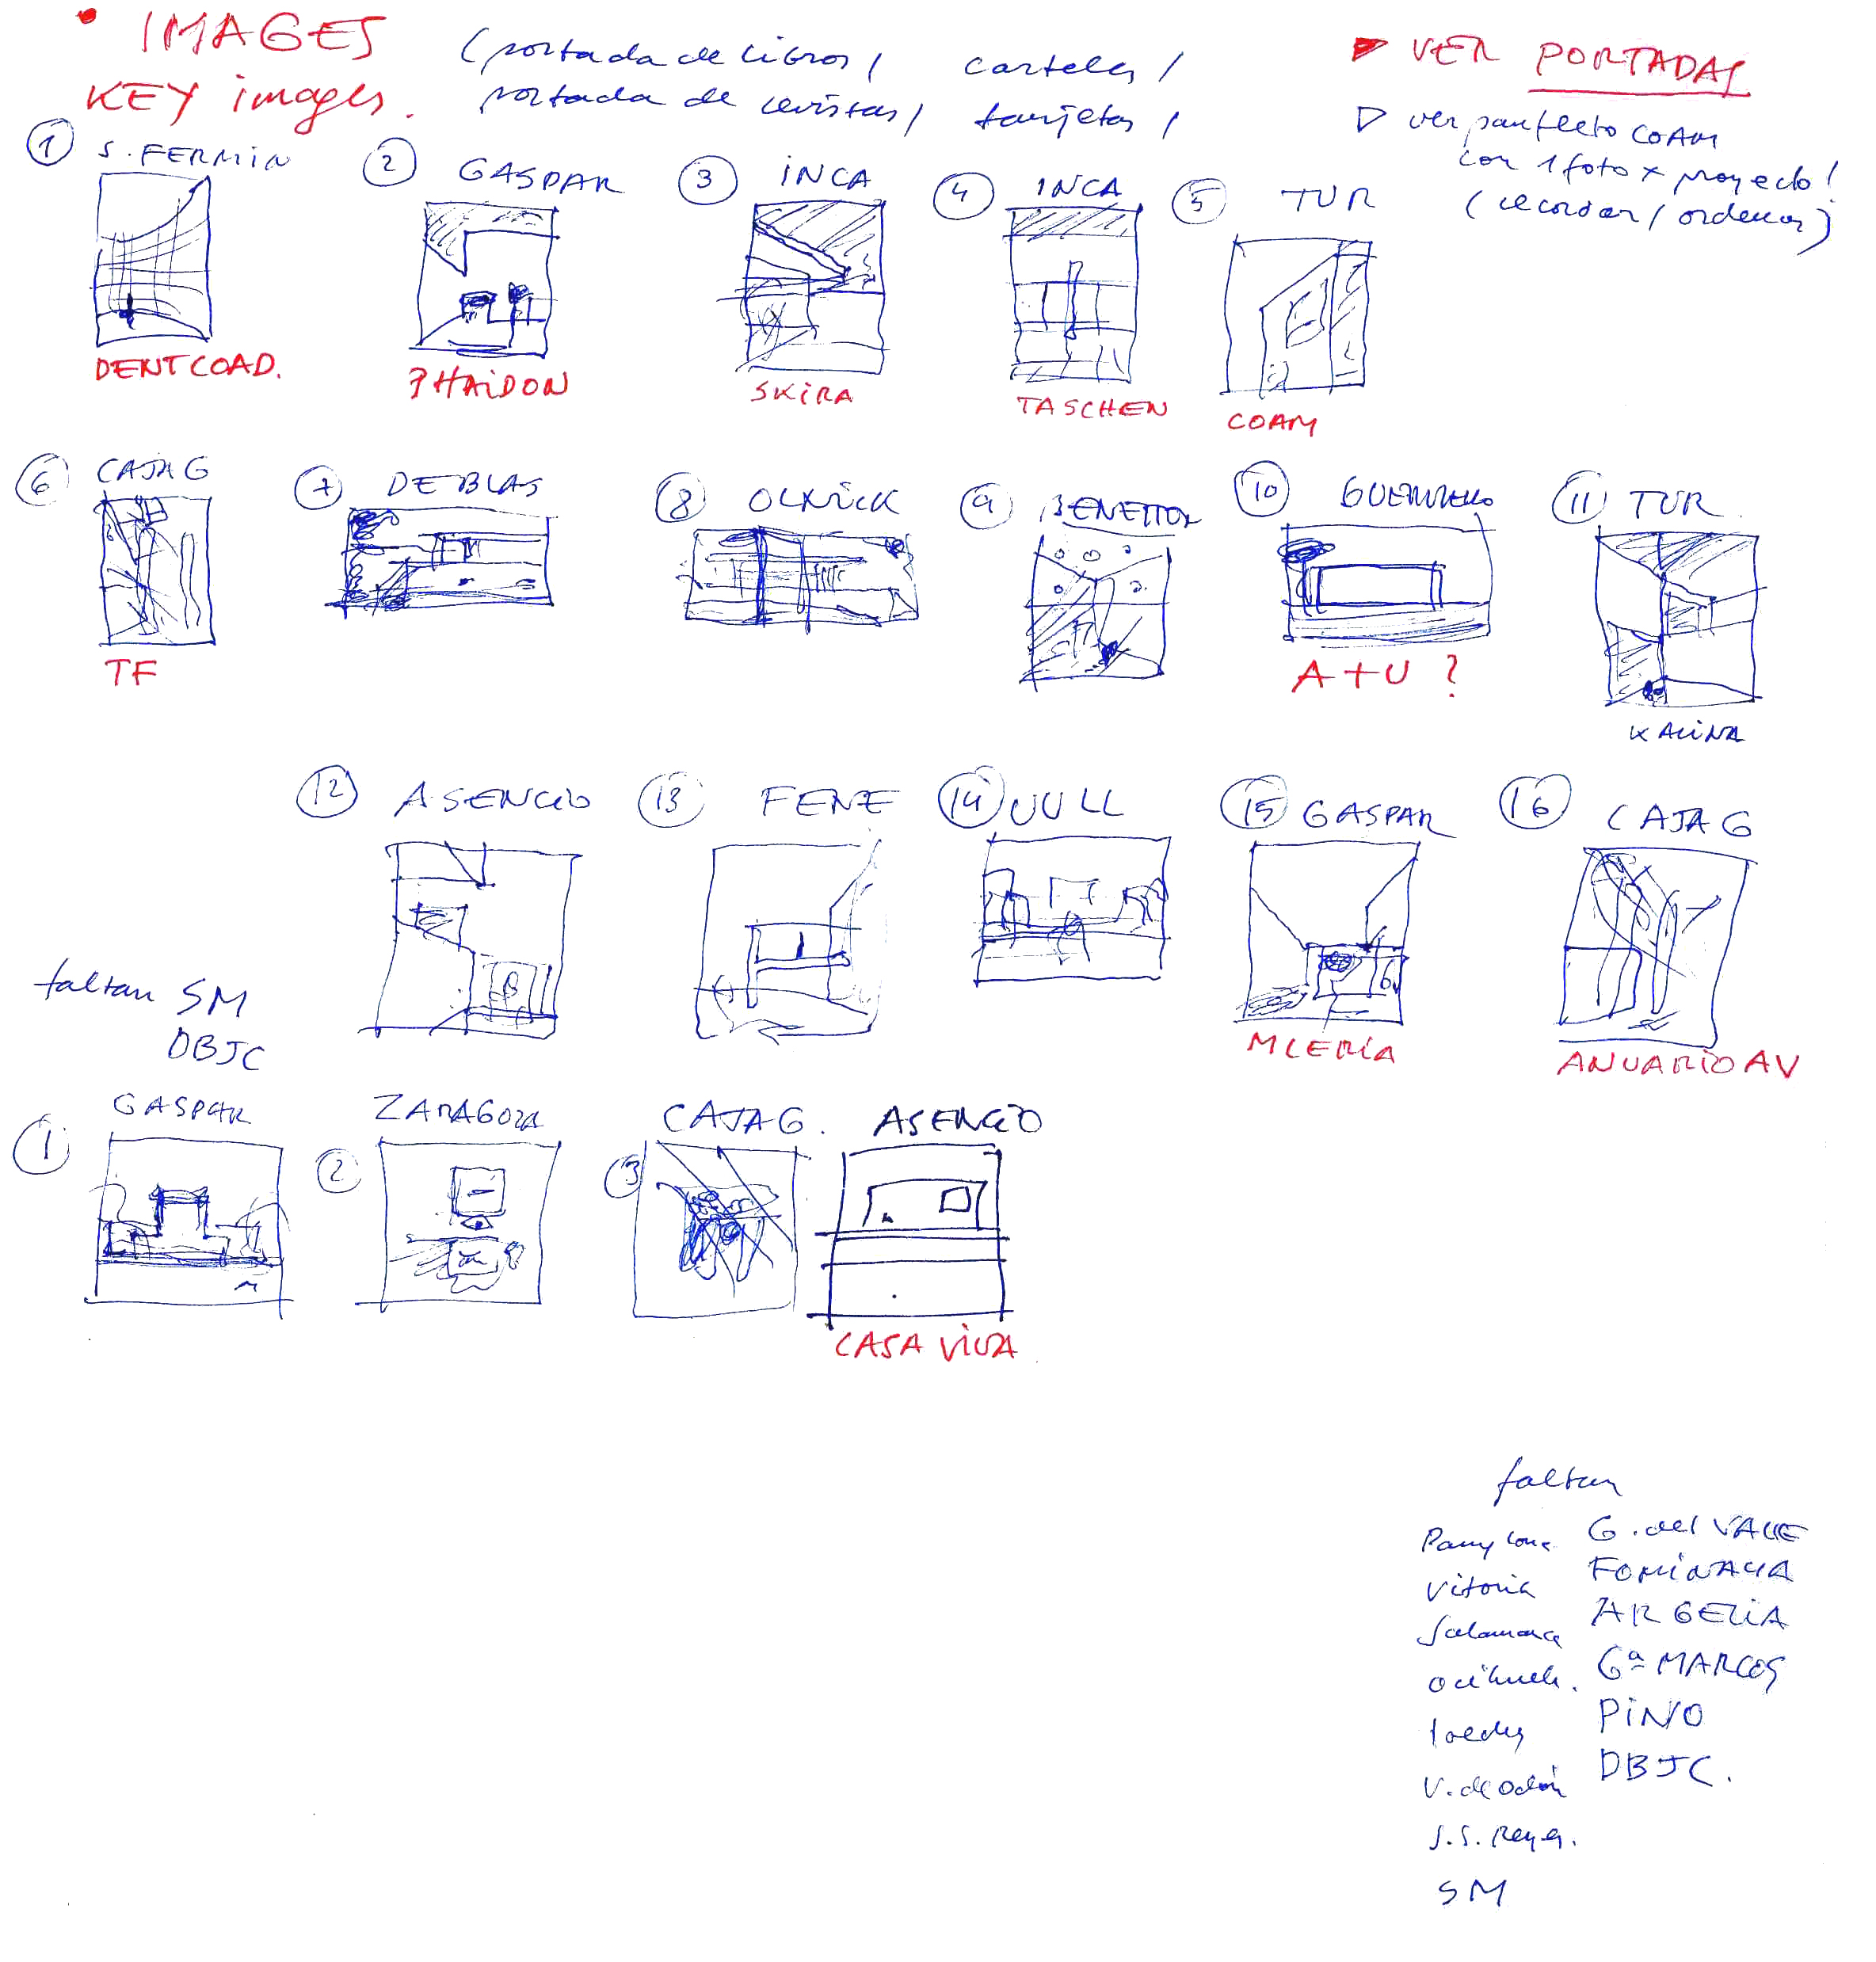 • IMAGES
KEY images.
(portada de libros / carteles /
portada de revistas / tarjetas /
VER PORTADAS
ver panfleto COAM
con 1 foto x proyecto!
(recordar / ordenar)
1 S. FERMIN
2 GASPAR
3 INCA
4 INCA
5 TUR
DENTCOAD.
PHAIDON
SKIRA
TASCHEN
COAM
6 CAJA G
7 DE BLAS
8 OLNICK
9 BENETTON
10 GUERRERO
11 TUR
TF
A+U ?
KALINA
12 ASENCIO
13 FENE
14 UULL
15 GASPAR
16 CAJA G
MLERIA
ANUARIO AV
faltan SM
DBJC
1 GASPAR
2 ZARAGOZA
3 CAJA G.
ASENCIO
CASA VIVA
faltan
Pamplona G. del VALLE
Vitoria FOMINAYA
Salamanca ARGELIA
Orihuela. Gª MARCOS
PINO
V. de Odón DBJC.
S.S. Reyes.
SM